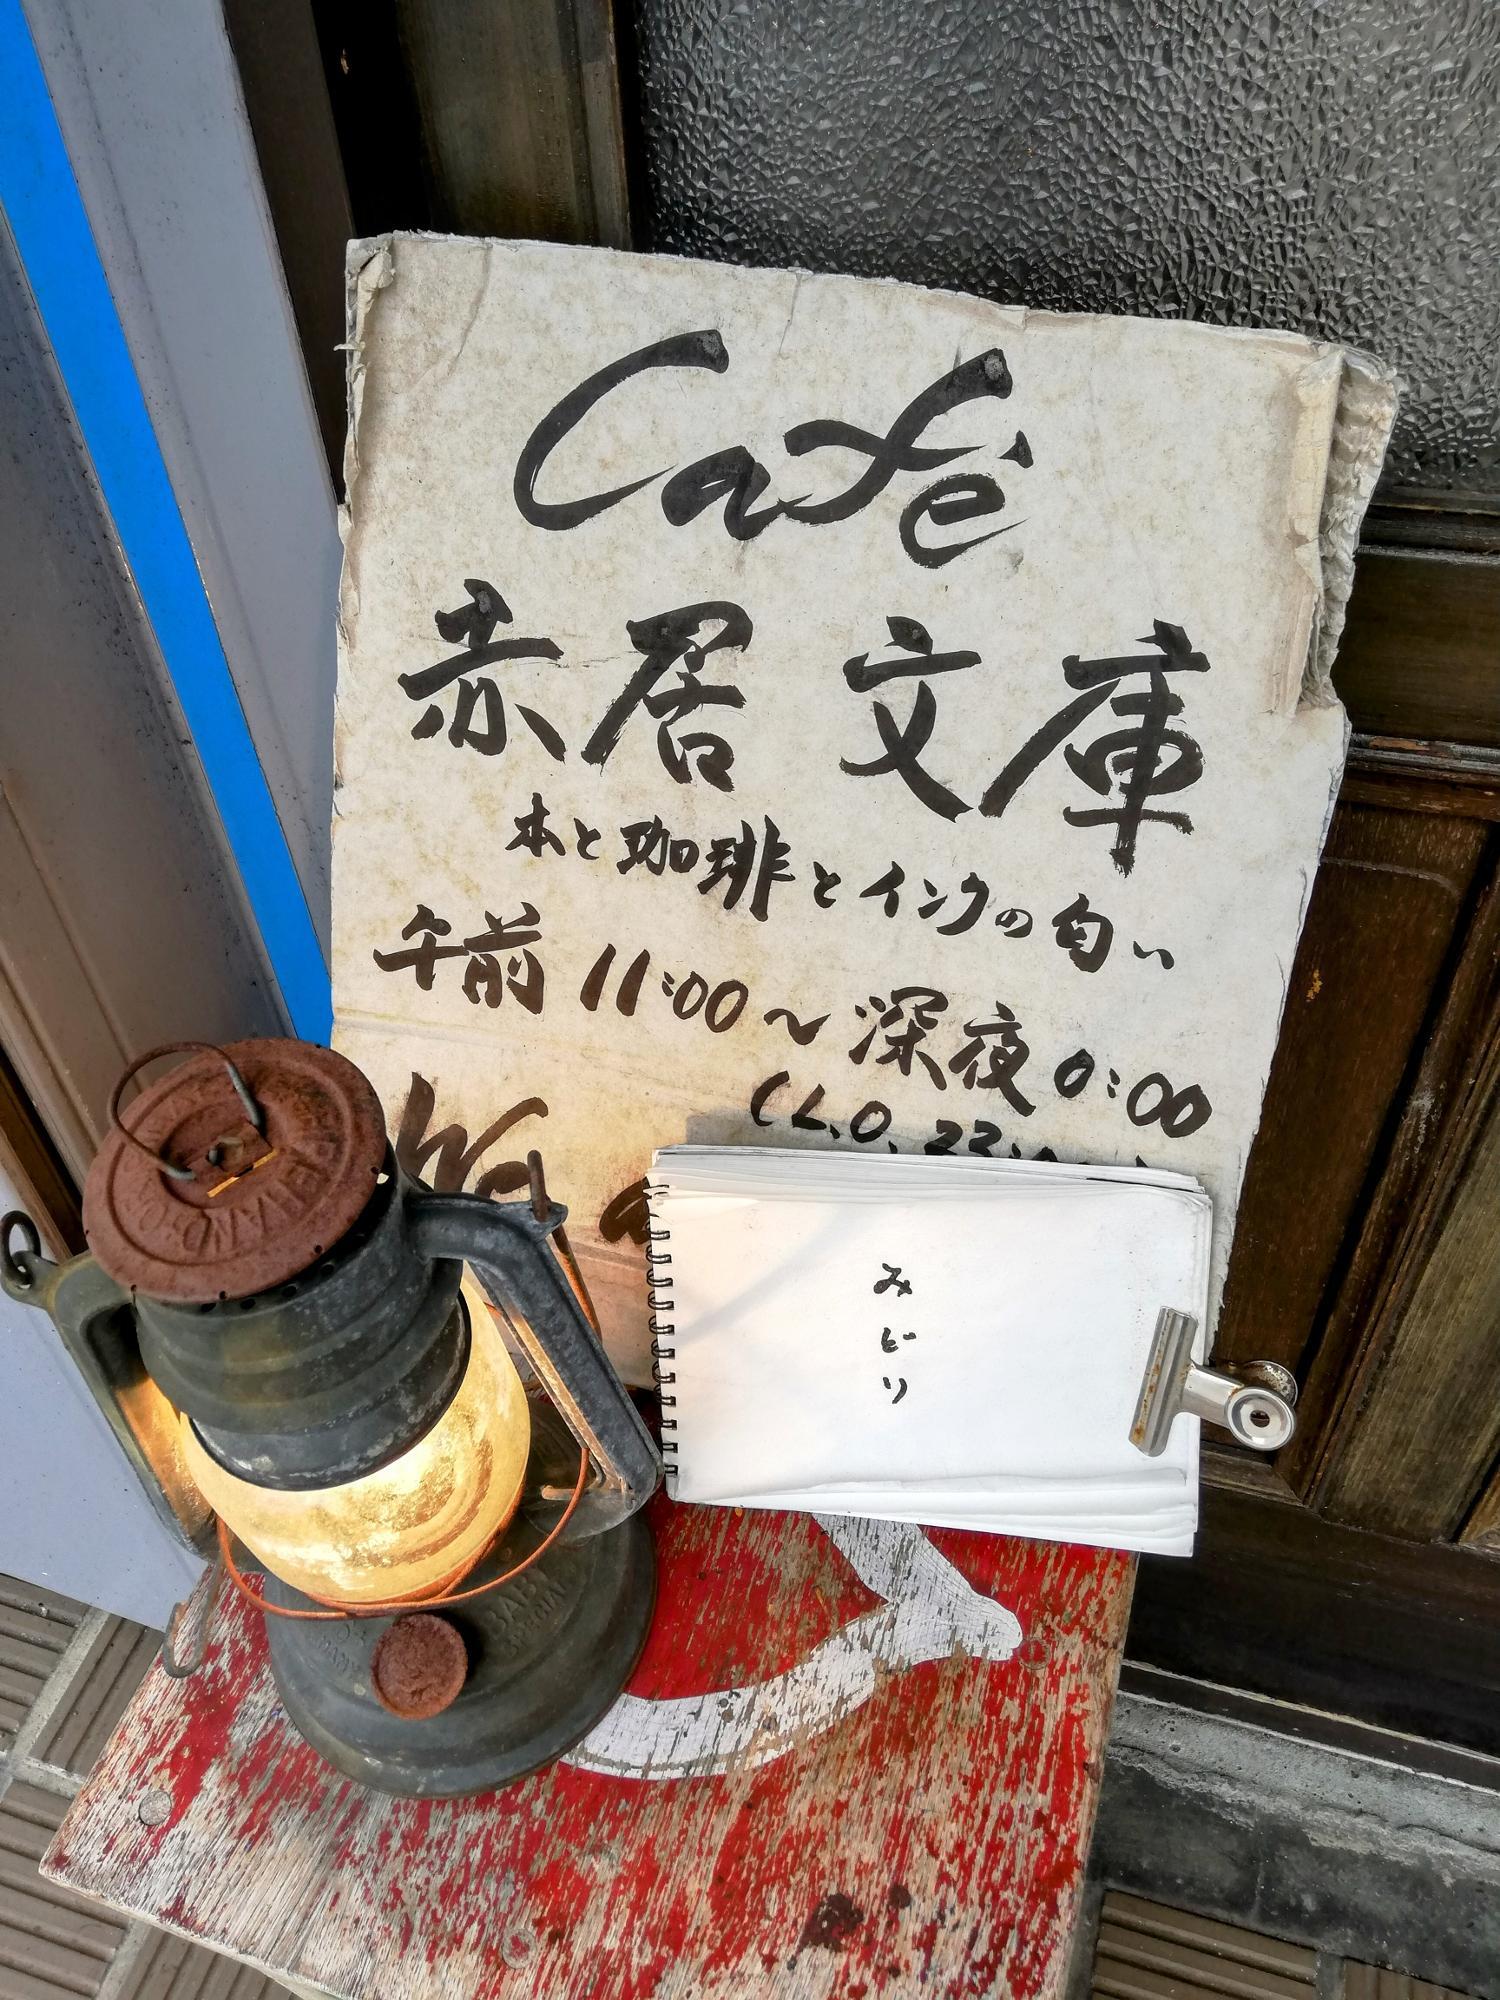 Café
赤居文庫
本と珈琲とインクの匂い
午前 11:00〜深夜 0:00
(L.O. 23:
みどり
BABY
SPECIAL